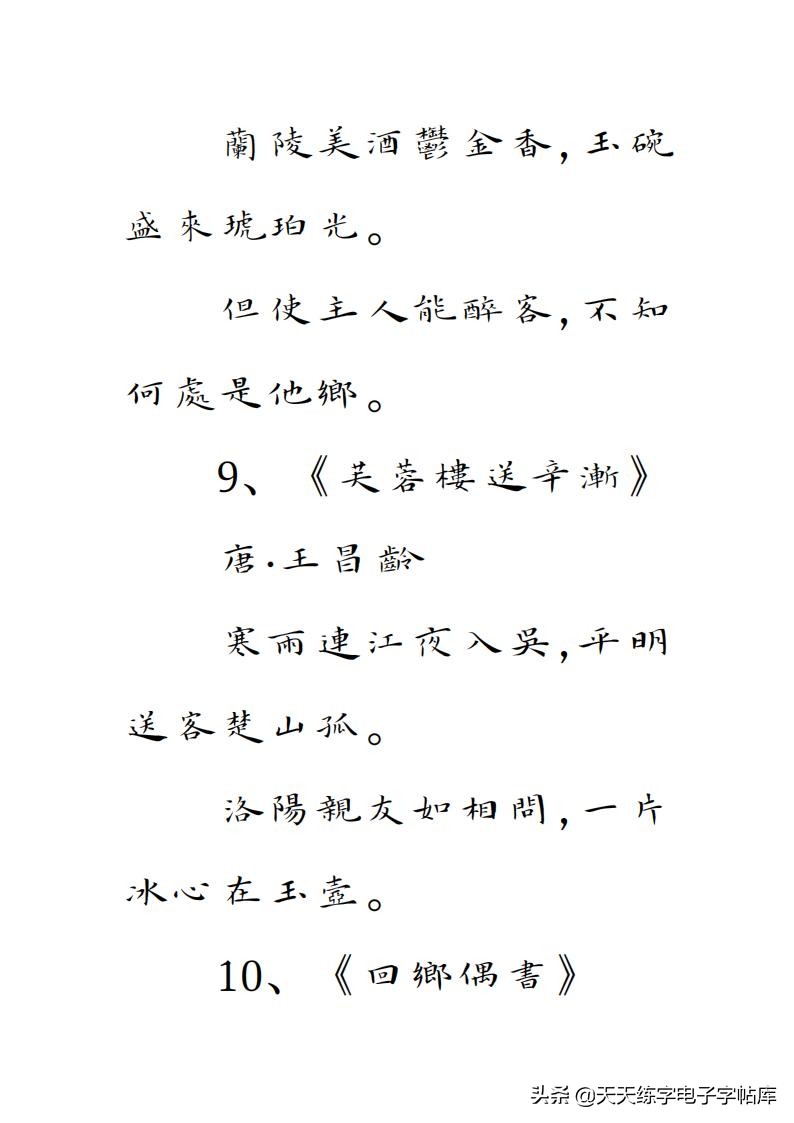 蘭陵美酒鬱金香，玉碗
盛來琥珀光。
但使主人能醉客，不知
何處是他鄉。
9、《芙蓉樓送辛漸》
唐·王昌齡
寒雨連江夜入吳，平明
送客楚山孤。
洛陽親友如相問，一片
冰心在玉壺。
10、《回鄉偶書》
头条 @天天练字电子字帖库